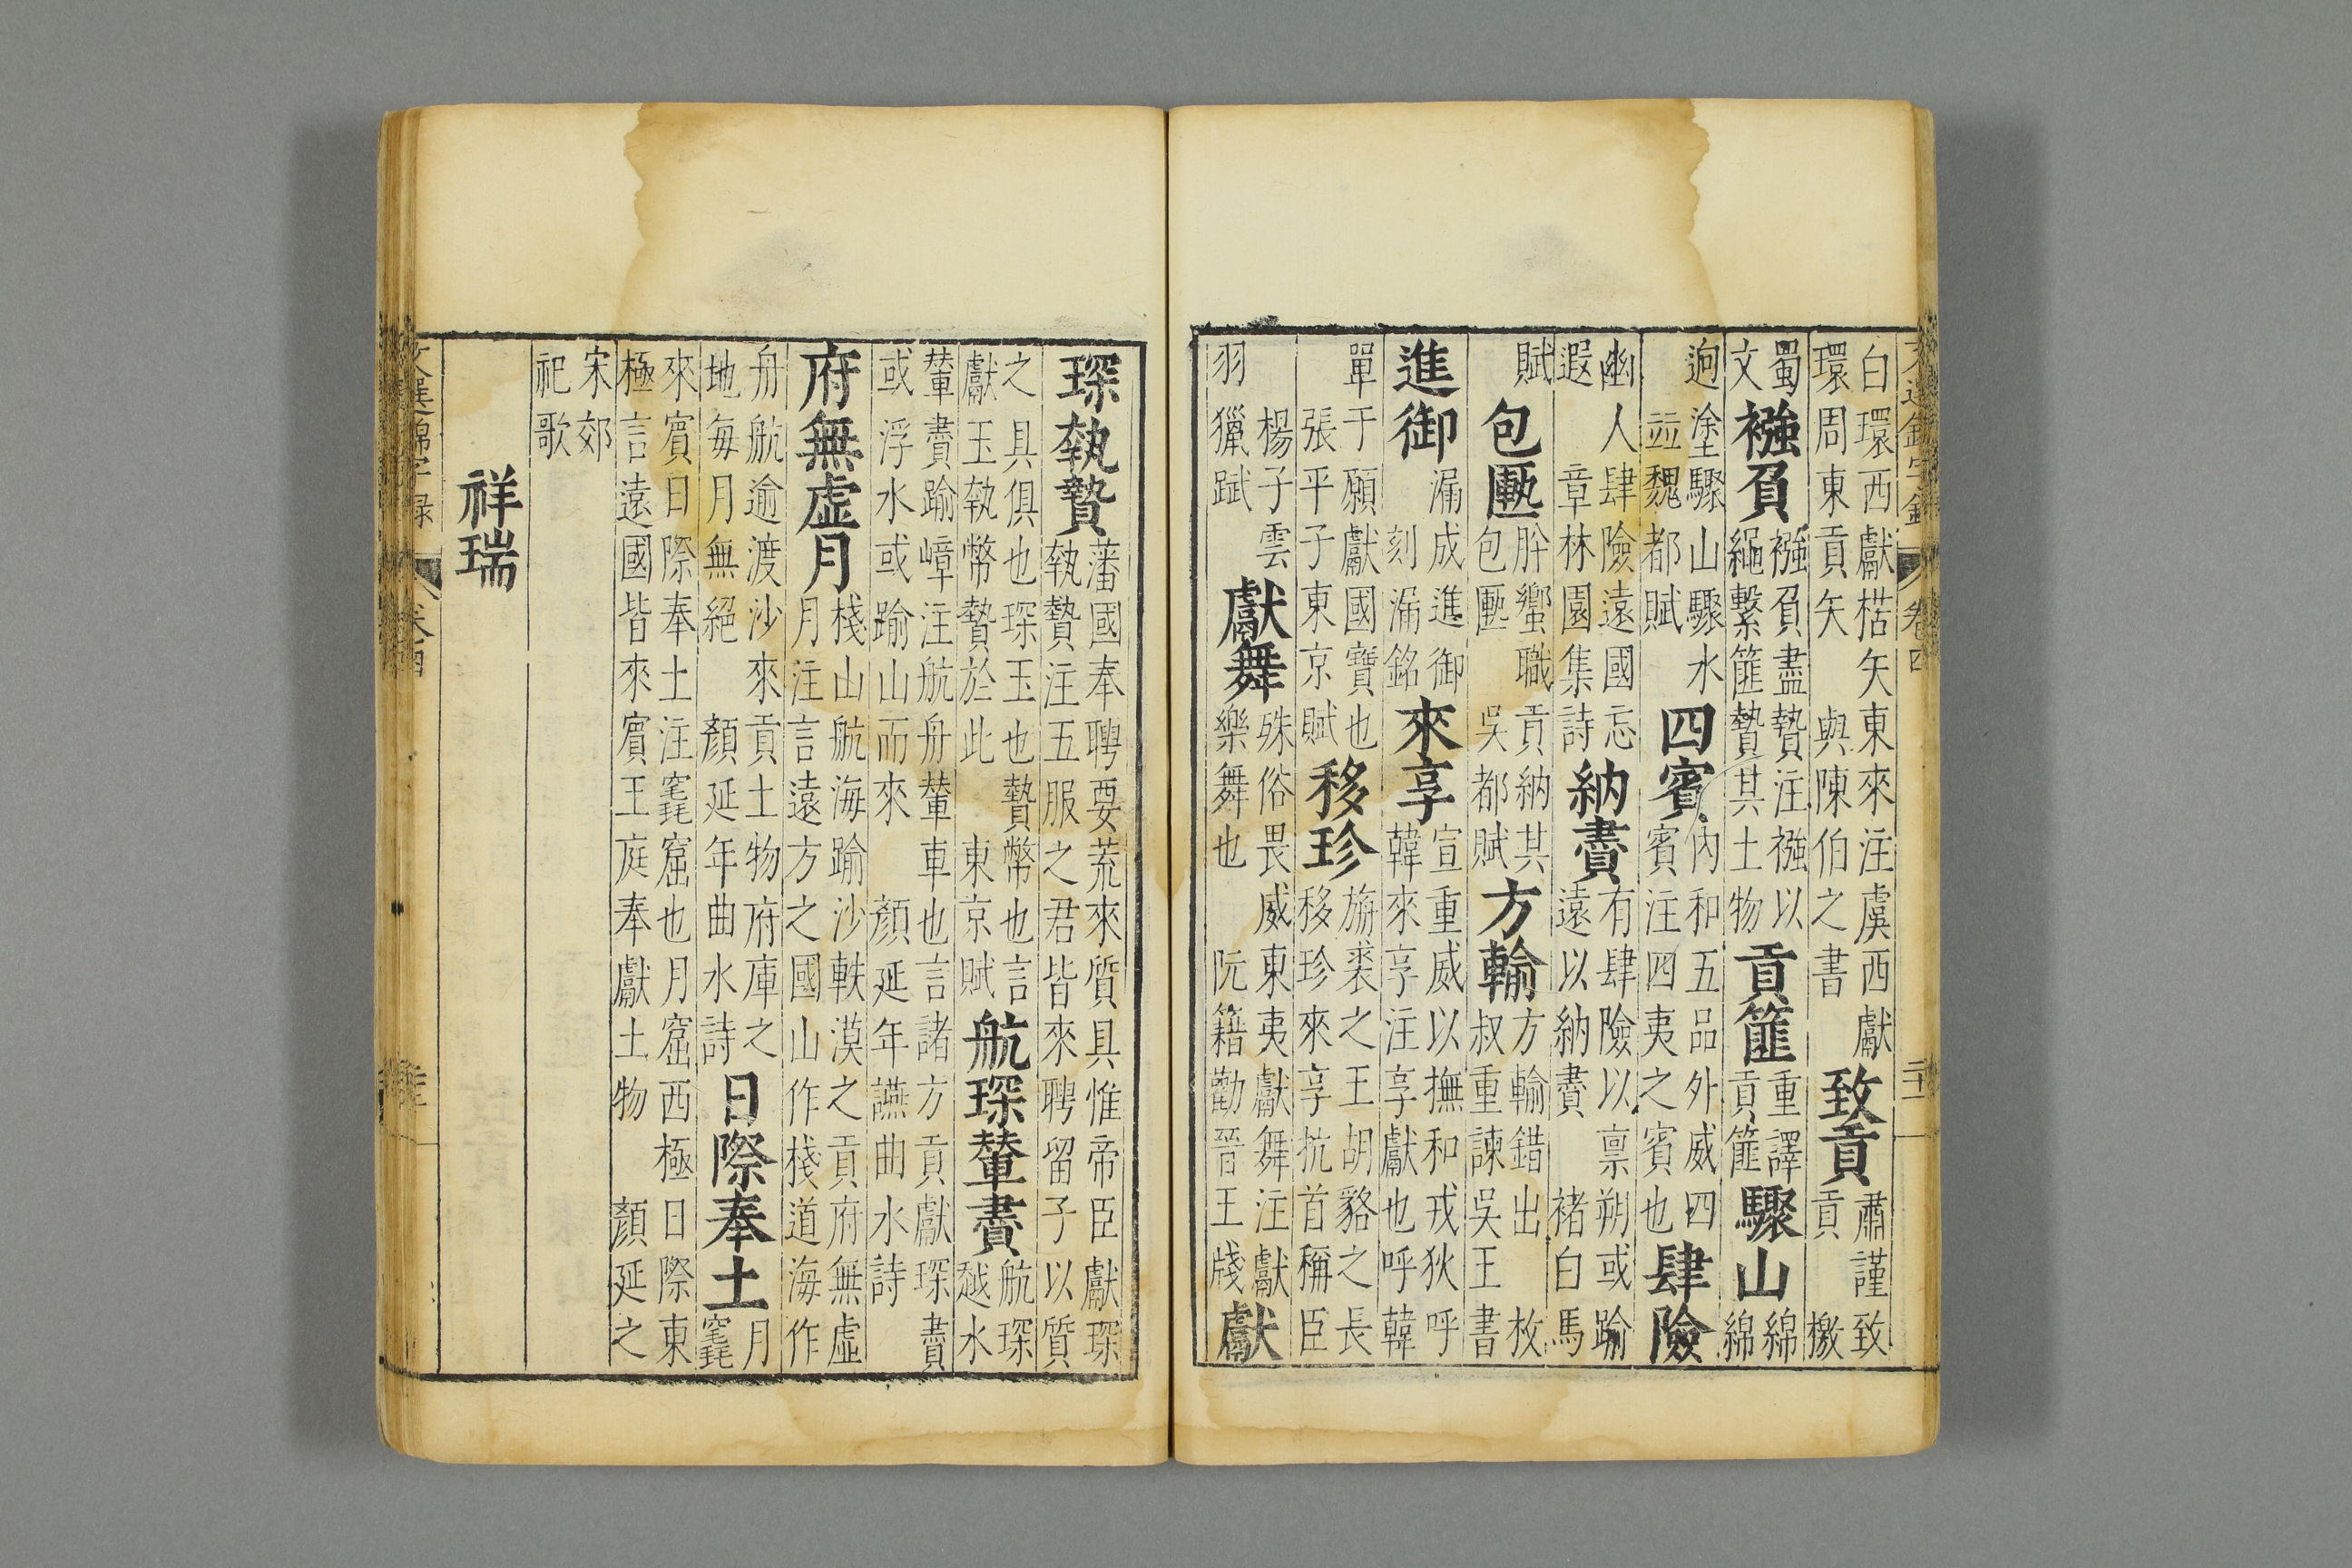 文選錦字錄 卷四 二十一
白環西獻楛矢東來注虞西獻
環周東貢矢 與陳伯之書
致貢
肅謹致
貢 檄
蜀
文
襁負
襁負盡贄注襁以
繩繫篚贄其土物
貢篚
重譯
貢篚
驟山
綿
綿
迥塗驟山驟水
並魏都賦
四賓
內和五品外威四
賓注四夷之賓也
肆險
幽人肆險遠國忘
遐 章林園集詩
納賮
有肆險以稟朔或踰
遠以納賮 褚白馬
賦
包匭
肸蠁職貢納其
包匭 吳都賦
方輸
方輸錯出 枚
叔重諫吳王書
進御
漏成進御
刻漏銘
來享
宣重威以撫和戎狄呼
韓來享注享獻也呼韓
單于願獻國寶也
張平子東京賦
移珍
旃裘之王胡貉之長
移珍來享抗首稱臣
楊子雲
羽獵賦
獻舞
殊俗畏威東夷獻舞注獻
樂舞也 阮籍勸晉王牋
獻
琛執贄
藩國奉聘要荒來質具惟帝臣獻琛
執贄注五服之君皆來聘留子以質
之具俱也琛玉也贄幣也言
獻玉執幣贄於此 東京賦
航琛輦賮
航琛
越水
輦賮踰嶂注航舟輦車也言諸方貢獻琛賮
或浮水或踰山而來 顏延年讌曲水詩
府無虛月
棧山航海踰沙軼漠之貢府無虛
月注言遠方之國山作棧道海作
舟航逾渡沙來貢土物府庫之
地每月無絕 顏延年曲水詩
日際奉土
月
竁
來賓日際奉土注竁窟也月窟西極日際東
極言遠國皆來賓王庭奉獻土物 顏延之
宋郊
祀歌
祥瑞
文選錦字錄 卷四